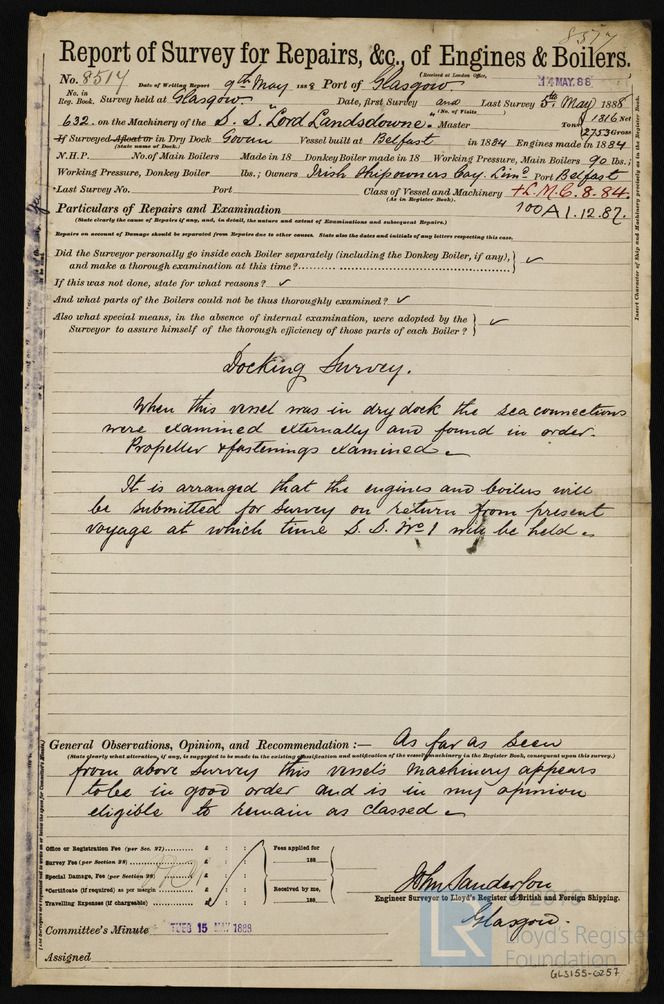 8517
Report of Survey for Repairs, &c., of Engines & Boilers.
(Received at London Office,
No. 8517 Date of Writing Report 9th May 1888 Port of Glasgow 14 MAY. 88
No. in Reg. Book. Survey held at Glasgow Date, first Survey and Last Survey 5th May 1888
(No. of Visits )
632 on the Machinery of the S. S. "Lord Landsdowne" Master Tons 1816 Net 2753 Gross
If Surveyed Afloat or in Dry Dock Govan Vessel built at Belfast in 1884 Engines made in 1884
(State name of Dock.)
N.H.P. No. of Main Boilers Made in 18 Donkey Boiler made in 18 Working Pressure, Main Boilers 90 lbs.;
Working Pressure, Donkey Boiler lbs.; Owners Irish Shipowners Coy. Limd Port Belfast
Last Survey No. Port Class of Vessel and Machinery +L.M.C. 8.84.
(As in Register Book).
100A1.12.87.
Particulars of Repairs and Examination
(State clearly the cause of Repairs if any, and, in detail, the nature and extent of Examinations and subsequent Repairs.)
Repairs on account of Damage should be separated from Repairs due to other causes. State also the dates and initials of any letters respecting this case.
Did the Surveyor personally go inside each Boiler separately (including the Donkey Boiler, if any), and make a thorough examination at this time? ✓
If this was not done, state for what reasons? ✓
And what parts of the Boilers could not be thus thoroughly examined? ✓
Also what special means, in the absence of internal examination, were adopted by the Surveyor to assure himself of the thorough efficiency of those parts of each Boiler? ✓
Insert Character of Ship and Machinery precisely as in the Register Book.
Docking Survey.
When this vessel was in dry dock the sea connections
were examined externally and found in order.
Propeller & fastenings examined.
It is arranged that the engines and boilers will
be submitted for survey on return from present
voyage at which time S. S. No 1 will be held.
General Observations, Opinion, and Recommendation :— As far as seen
(State clearly what alteration, if any, is suggested to be made in the existing classification and notification of the vessel's machinery in the Register Book, consequent upon this survey.)
from above survey this vessels machinery appears
to be in good order and is in my opinion
eligible to remain as classed.
Office or Registration Fee (per Sec. 27) £ : :
Survey Fee (per Section 28) £ : :
Special Damage, Fee (per Section 28) £ : :
*Certificate (if required) as per margin £ : :
Travelling Expenses (if chargeable) £ : :
Fees applied for
188
Received by me,
188
John Sanderson
Engineer Surveyor to Lloyd's Register of British and Foreign Shipping.
Glasgow.
Committee's Minute TUES 15 MAY 1888
Assigned
LR
© 2019
Lloyd's Register
Foundation
GLS155-0257